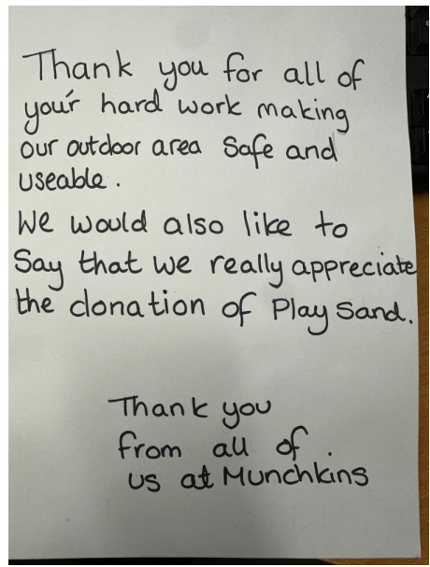 Thank you for all of
your hard work making
our outdoor area Safe and
useable.
We would also like to
Say that we really appreciate
the donation of Play Sand.
Thank you
from all of
us at Munchkins